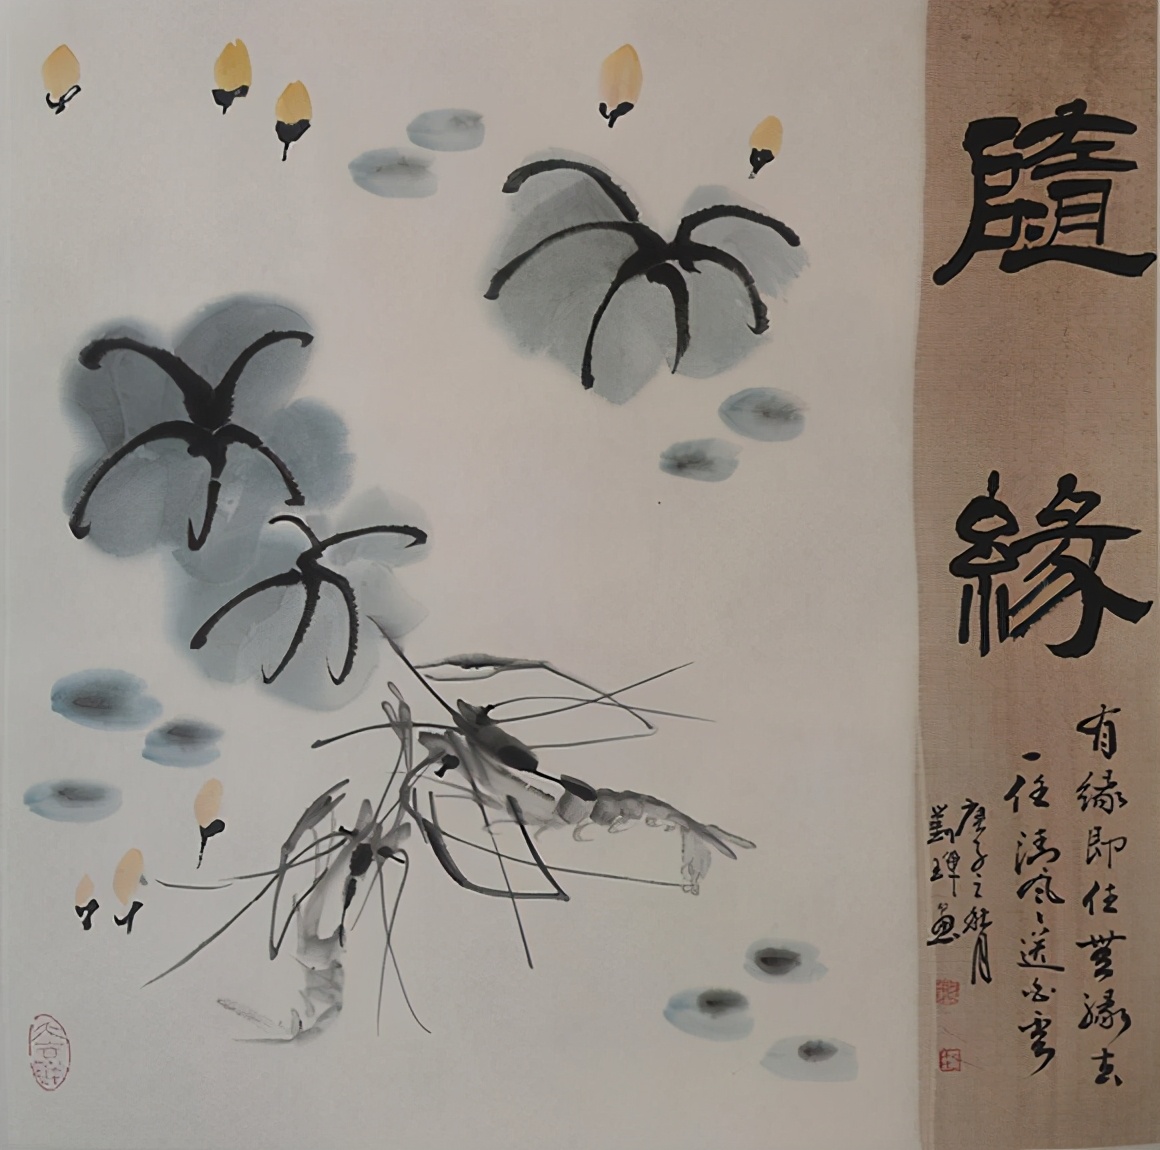 隨緣
有緣即住無緣去
一任清風送白雲
庚子之秋月